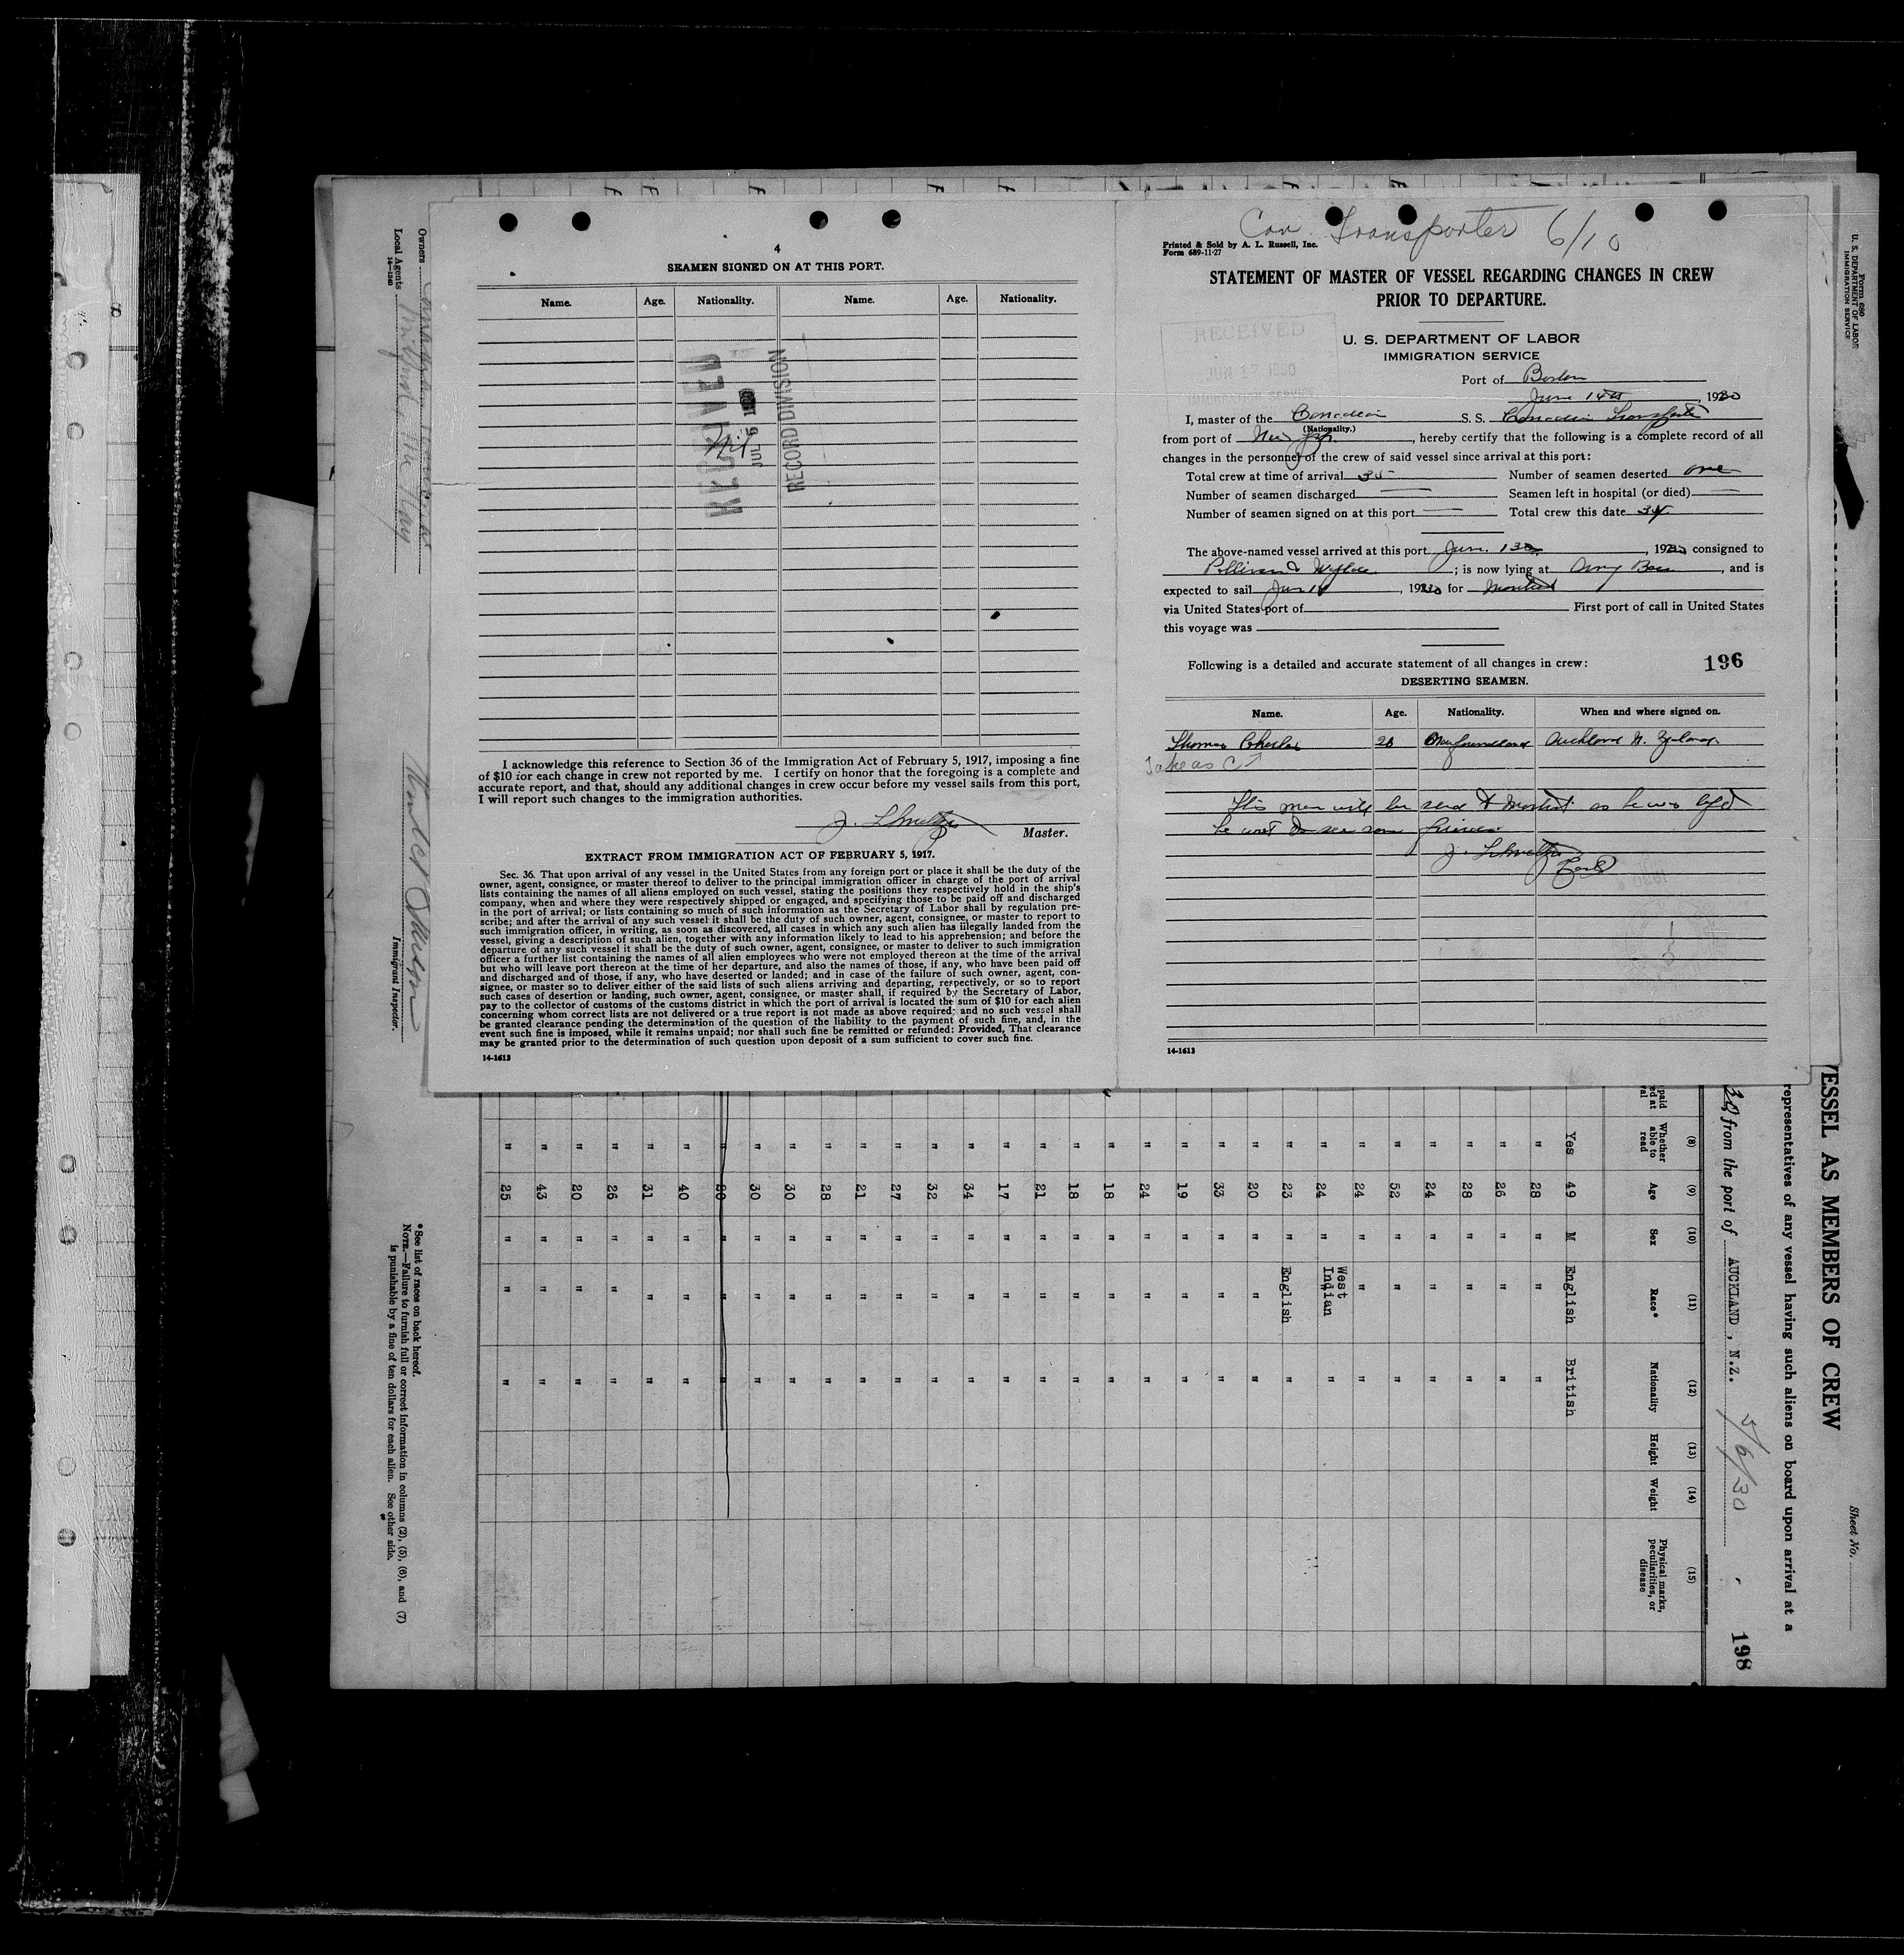 4
SEAMEN SIGNED ON AT THIS PORT.
Name. Age. Nationality. Name. Age. Nationality.
RECEIVED
JUL 9
RECORD DIVISION
Nil
I acknowledge this reference to Section 36 of the Immigration Act of February 5, 1917, imposing a fine
of $10 for each change in crew not reported by me. I certify on honor that the foregoing is a complete and
accurate report, and that, should any additional changes in crew occur before my vessel sails from this port,
I will report such changes to the immigration authorities.
Master.
EXTRACT FROM IMMIGRATION ACT OF FEBRUARY 5, 1917.
Sec. 36. That upon arrival of any vessel in the United States from any foreign port or place it shall be the duty of the
owner, agent, consignee, or master thereof to deliver to the principal immigration officer in charge of the port of arrival
lists containing the names of all aliens employed on such vessel, stating the positions they respectively hold in the ship's
company, when and where they were respectively shipped or engaged, and specifying those to be paid off and discharged
in the port of arrival; or lists containing so much of such information as the Secretary of Labor shall by regulation pre-
scribe; and after the arrival of any such vessel it shall be the duty of such owner, agent, consignee, or master to report to
such immigration officer, in writing, as soon as discovered, all cases in which any such alien has illegally landed from the
vessel, giving a description of such alien, together with any information likely to lead to his apprehension; and before the
departure of any such vessel it shall be the duty of such owner, agent, consignee, or master to deliver to such immigration
officer a further list containing the names of all alien employees who were not employed thereon at the time of the arrival
but who will leave port thereon at the time of her departure, and also the names of those, if any, who have been paid off
and discharged and of those, if any, who have deserted or landed; and in case of the failure of such owner, agent, con-
signee, or master so to deliver either of the said lists of such aliens arriving and departing, respectively, or so to report
such cases of desertion or landing, such owner, agent, consignee, or master shall, if required by the Secretary of Labor,
pay to the collector of customs of the customs district in which the port of arrival is located the sum of $10 for each alien
concerning whom correct lists are not delivered or a true report is not made as above required; and no such vessel shall
be granted clearance pending the determination of the question of the liability to the payment of such fine, and, in the
event such fine is imposed, while it remains unpaid; nor shall such fine be remitted or refunded: Provided, That clearance
may be granted prior to the determination of such question upon deposit of a sum sufficient to cover such fine.
14-1613
Can. Transporter 6/10
Printed & Sold by A. L. Russell, Inc.
Form 689-11-27
STATEMENT OF MASTER OF VESSEL REGARDING CHANGES IN CREW
PRIOR TO DEPARTURE.
RECEIVED
JUN 17 1930
U. S. DEPARTMENT OF LABOR
IMMIGRATION SERVICE
Port of Boston
June 14th, 1930
I, master of the Canadian S. S. Canadian Transporter
(Nationality.)
from port of New York, hereby certify that the following is a complete record of all
changes in the personnel of the crew of said vessel since arrival at this port:
Total crew at time of arrival 35 Number of seamen deserted one
Number of seamen discharged — Seamen left in hospital (or died) —
Number of seamen signed on at this port — Total crew this date 34
The above-named vessel arrived at this port June 13th, 1930 consigned to
; is now lying at Army Base, and is
expected to sail June 14, 1930 for Montreal
via United States port of First port of call in United States
this voyage was
Following is a detailed and accurate statement of all changes in crew: 196
DESERTING SEAMEN.
Name. Age. Nationality. When and where signed on.
Thomas Charles 26 Newfoundland Auckland N. Zealand.
This man will be send to Montreal as he was left
he went to see some friends
14-1613
Owners
Local Agents
14-1240
Immigrant Inspector.
* See list of races on back hereof.
NOTE.—Failure to furnish full or correct information in columns (2), (5), (6), and (7)
is punishable by a fine of ten dollars for each alien. See other side.
Form 680
U. S. DEPARTMENT OF LABOR
IMMIGRATION SERVICE
Sheet No.
VESSEL AS MEMBERS OF CREW
representatives of any vessel having such aliens on board upon arrival at a
30, from the port of AUCKLAND, N.Z. 5/6/30 198
(8) (9) (10) (11) (12) (13) (14) (15)
Whether able to read Age Sex Race* Nationality Height Weight Physical marks, peculiarities, or disease
Yes 49 M English British
" 28 " " "
" 26 " " "
" 28 " " "
" 24 " " "
" 52 " " "
" 24 " " "
" 24 " West Indian "
" 23 " English "
" 20 " " "
" 33 " " "
" 19 " " "
" 24 " " "
" 18 " " "
" 18 " " "
" 21 " " "
" 17 " " "
" 34 " " "
" 32 " " "
" 27 " " "
" 21 " " "
" 28 " " "
" 30 " " "
" 30 " " "
" 26 " " "
" 40 " " "
" 31 " " "
" 26 " " "
" 20 " " "
" 43 " " "
" 25 " " "